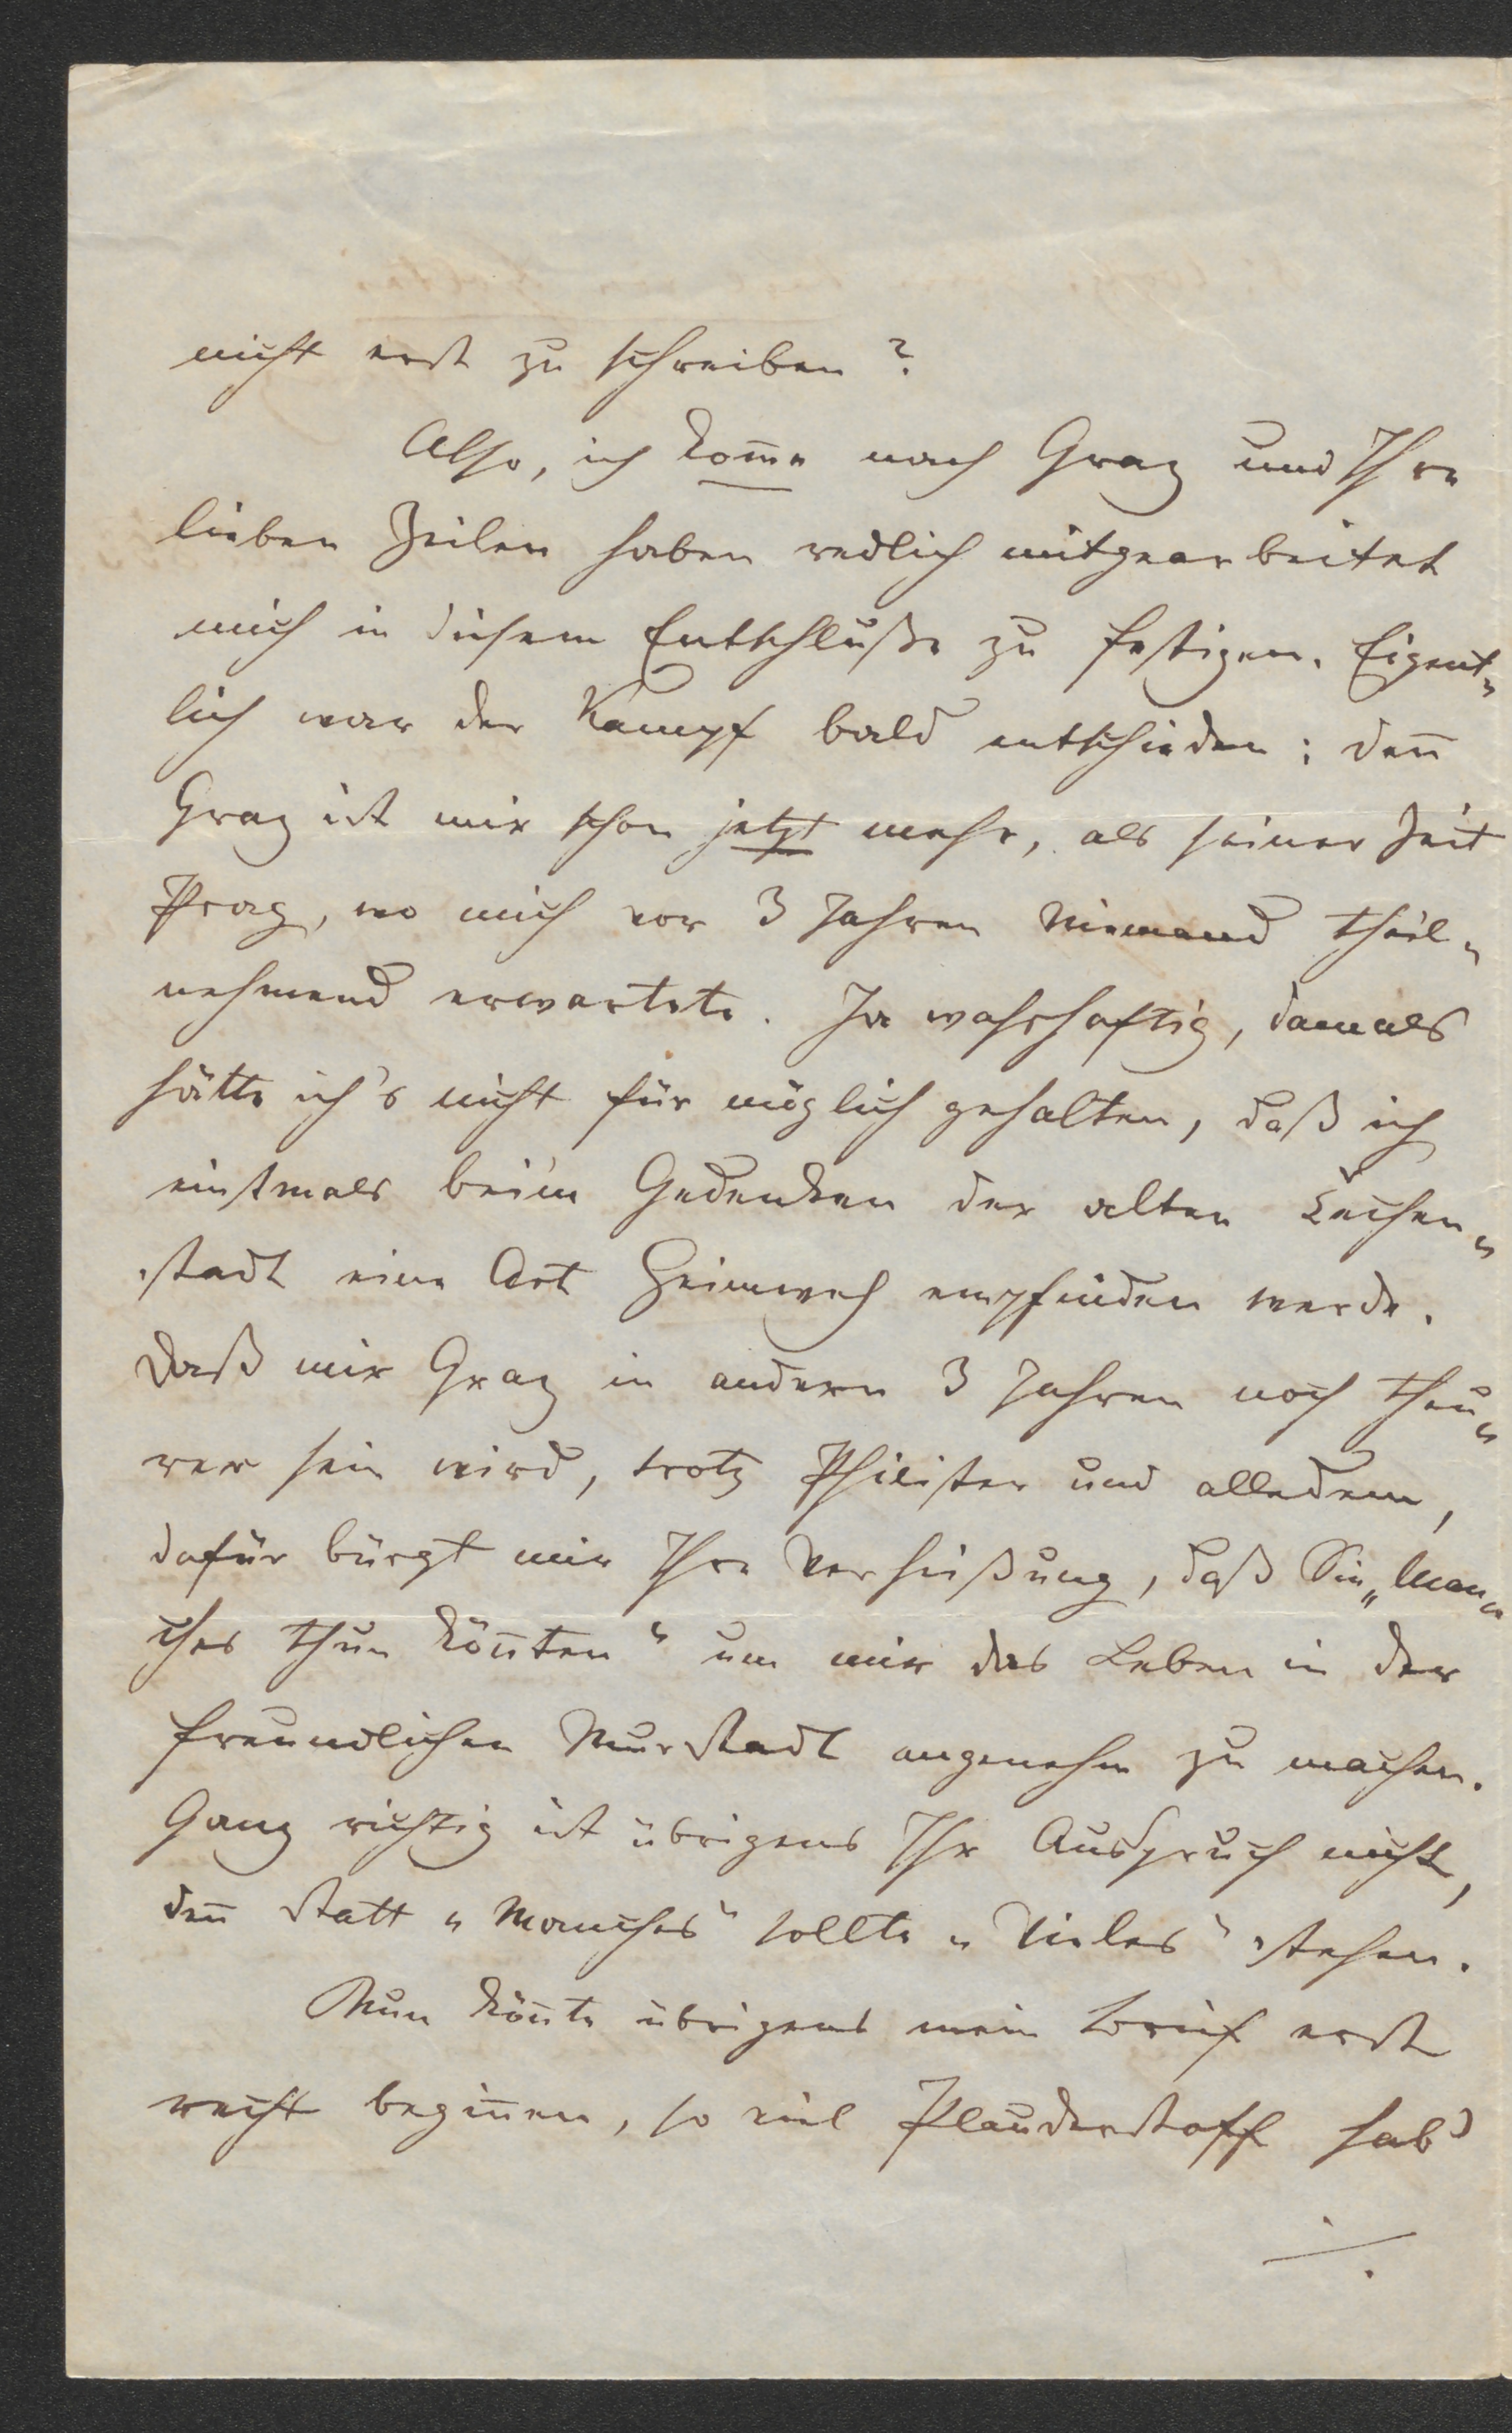 nicht erst zu schreiben?
Also, ich kom̅e nach Graz und Ihre
lieben Zeilen haben redlich mitgearbeitet
mich in diesem Entschluße zu festigen. Eigent„
lich war der Kampf bald entschieden: den̅
Graz ist mir schon jetzt mehr, als seiner Zeit
Prag, wo mich vor 3 Jahren Niemand theil„
nehmend erwartete. Ja wahrhaftig, damals
hätte ich's nicht für möglich gehalten, daß ich
einstmals bei'm Gedenken der alten
stadt eine Art Heimweh empfinden werde.
Daß mir Graz in andern 3 Jahren noch theu„
rer sein wird, trotz Philister und alledem,
dafür bürgt mir Ihre Verheißung, daß Sie „Man„
ches thun kön̅ten“ um mir das Leben in der
freundlichen Murstadt angenehm zu machen.
Ganz richtig ist übrigens Ihr Ausspruch nicht,
den̅ statt „Manches“ sollte „Vieles“ stehen.
Nun kön̅te übrigens mein Brief erst
recht begin̅en, so viel Plauderstoff hab'
./.